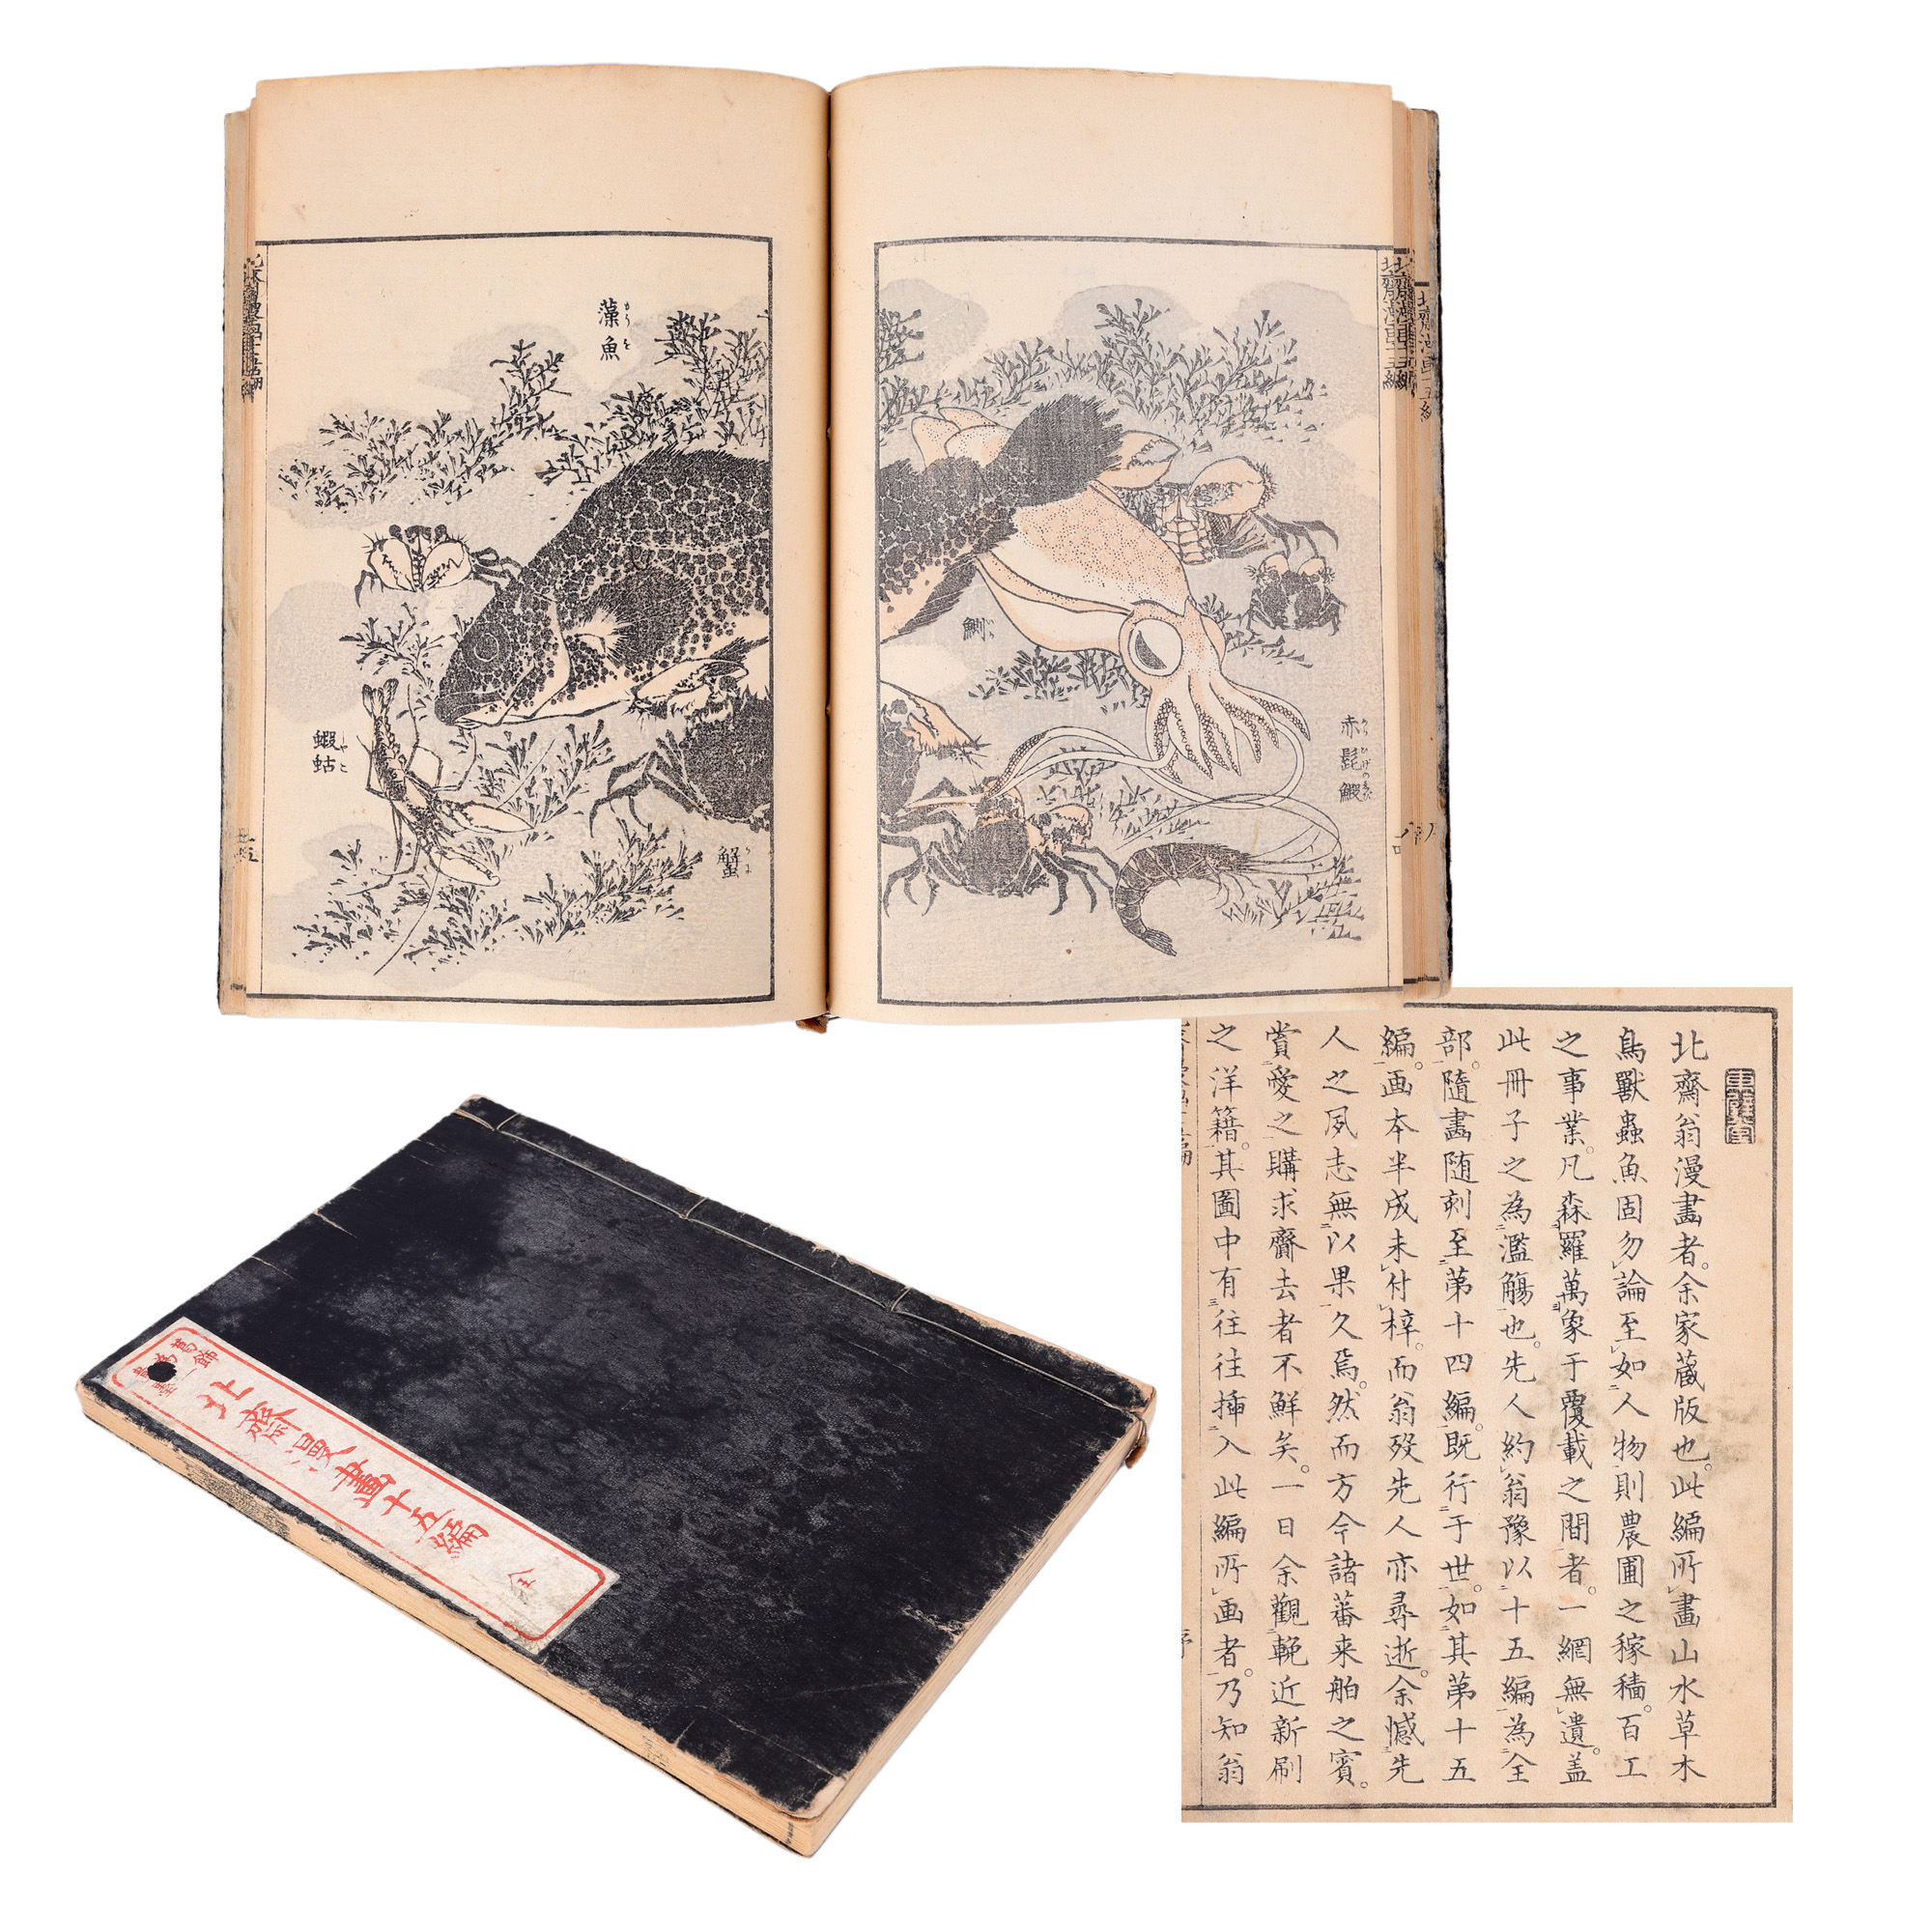 北齋漫画十五編
赤髭鰕
藻魚
もうを
蟹
かに
蝦蛄
しやこ
東壁堂
北齋翁漫畫者。余家蔵版也。此編所畫山水草木
鳥獸蟲魚固勿論至如人物則農圃之稼穡。百工
之事業。凡森羅萬象于覆載之間者。一網無遺。盖
此冊子之為濫觴也。先人約翁豫以十五編為全
部。隨畫随刻至第十四編。既行于世。如其第十五
編。画本半成未付梓。而翁歿先人亦尋逝。余憾先
人之夙志無以果久焉。然而方今諸蕃来舶之賓。
賞愛之購求齎去者不鮮矣。一日余觀輓近新刷
之洋籍。其圖中有往往挿入此編所画者。乃知翁
葛飾
為一
北齋漫畫十五編
全